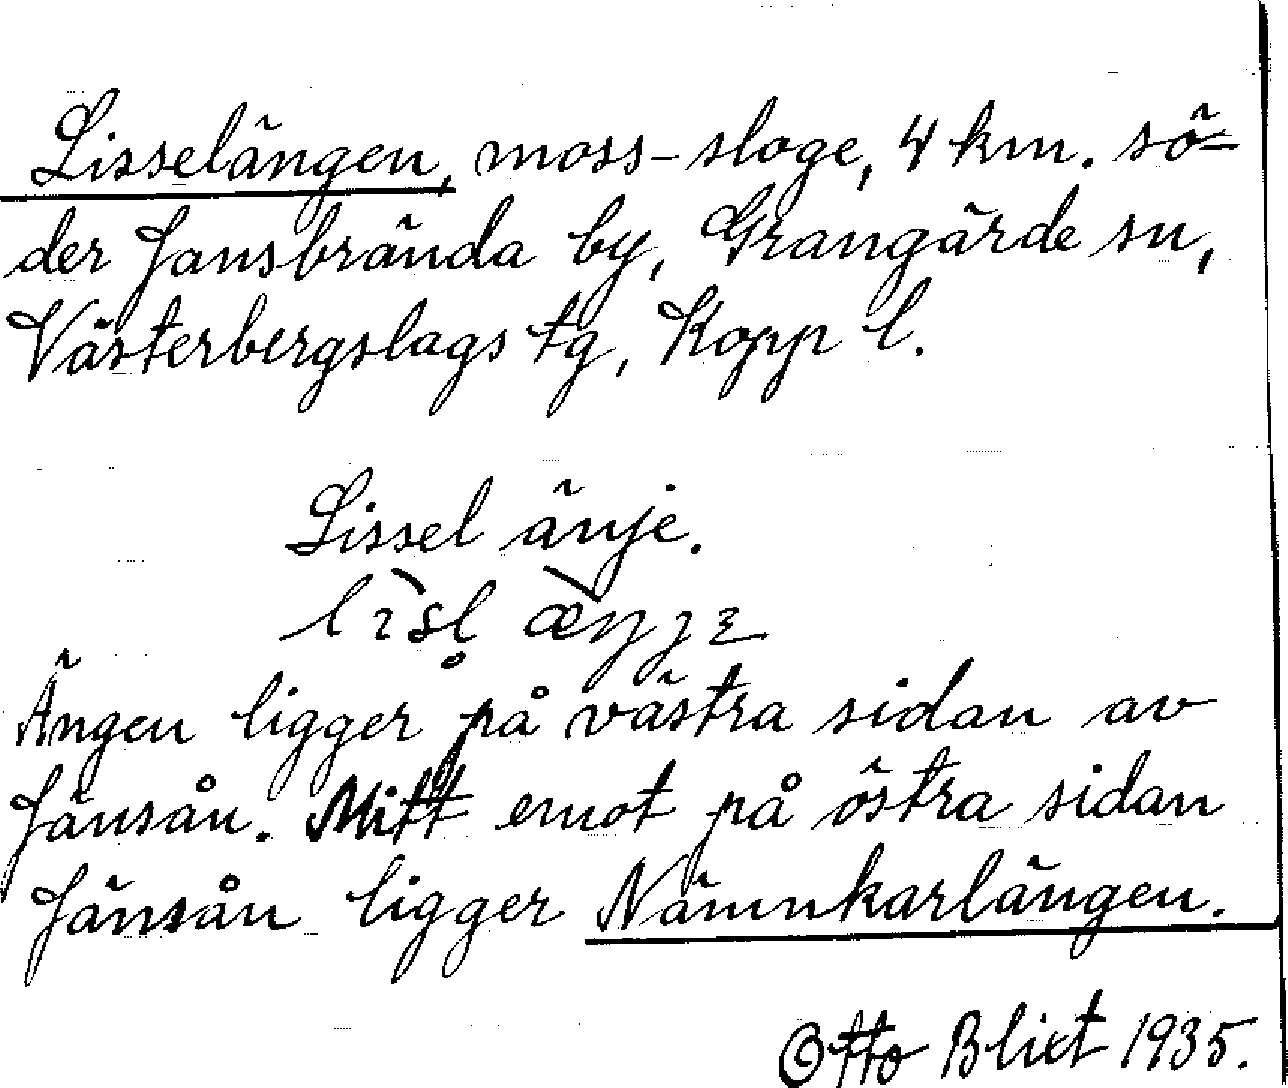 Lisselängen, moss-sloge, 4 km. sö-
der Jansbrända by, Grangärde sn,
Västerbergslags tg, Kopp l.
Lissel änje.
Ängen ligger på västra sidan av
Jänsån. Mitt emot på östra sidan
Jänsån ligger Nämnkarlängen.
Otto Blixt 1935.